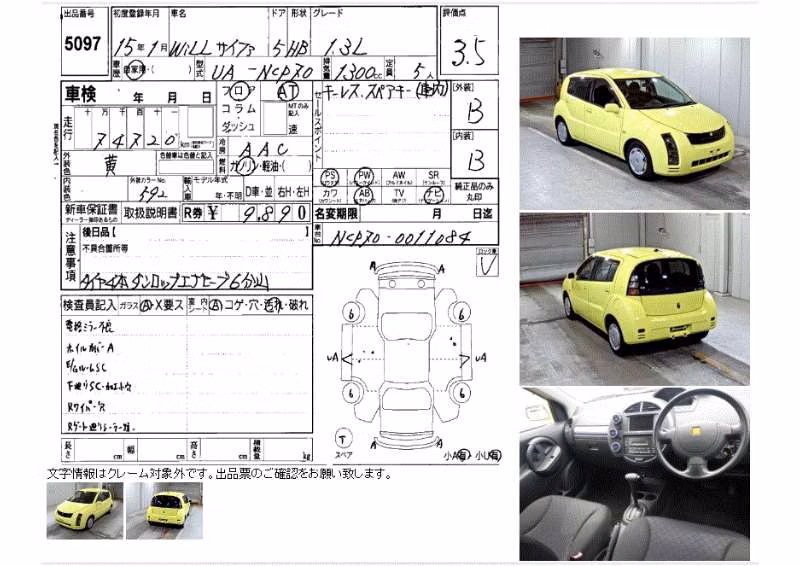 出品番号 初度登録年月 車名 ドア 形状 グレード 評価点
5097 15年1月 WiLL サイファ 5 HB 1.3L 3.5
車歴 自家用・( ) 型式 UA-NCP70 排気量 1300cc 定員 5人
車検 年 月 日 フロア AT キーレス、スペアキー(車内) [外装]
十万 千 百 十 コラム MTのみ記入 B
走行 74720 km ダッシュ 速 セールスポイント
外装色 黄 色替車は色替と記入 冷房 AAC [内装]
燃料 ガソリン・軽油・( ) B
内装色 外装カラーNo. 592 輸入車 モデル年式 年・不明 D車・並 右H・左H
PS PW AW SR
カワ AB TV ナビ 純正品のみ丸印
新車保証書 取扱説明書 R券 ¥ 9,890 名変期限 月 日迄
ディーラー捺印あるもの
注意事項 後日品[ ] 車台No. NCP70-0011084
不具合箇所等 ロック車
タイヤ4本ダンロップエナセーブ6分山 V
検査員記入 ガラス A・X要ス 室内シート A コゲ・穴・汚れ・破れ
電格ミラー不良
ホイルカバーA
下廻りSC・
Rワイパー穴
A A
6 6
uA uA
6 6
A A
T
スペア 小A有 小U有
長さ cm 幅 cm 高さ cm 積載量 kg
文字情報はクレーム対象外です。出品票のご確認をお願い致します。